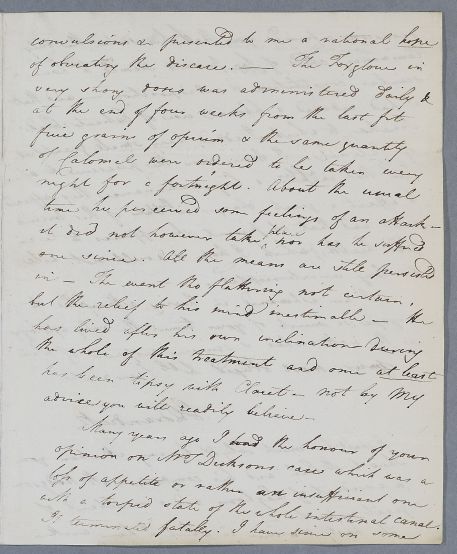 convulsions & presented to me a rational hope
of obviating the disease. — The Foxglove in
very strong doses was administered daily &
at the end of four weeks from the last fit
five grains of opium & the same quantity
of Calomel were ordered to be taken every
night for a fortnight. About the usual
time he perceived some feelings of an attack —
it did not however take place, nor has he suffered
one since. All the means are still persisted
in — The event tho flattering not certain,
but the relief to his mind inestimable — He
has lived after his own inclination during
the whole of this treatment and one at least
has been tipsy with Claret — not by my
advice you will readily believe —
Many years ago I had the honour of your
opinion on Mrs Dicksons case which was a
loss of appetite or rather an insufficient one
with a torpid state of the whole intestinal canal.
It terminated fatally. I have since on some